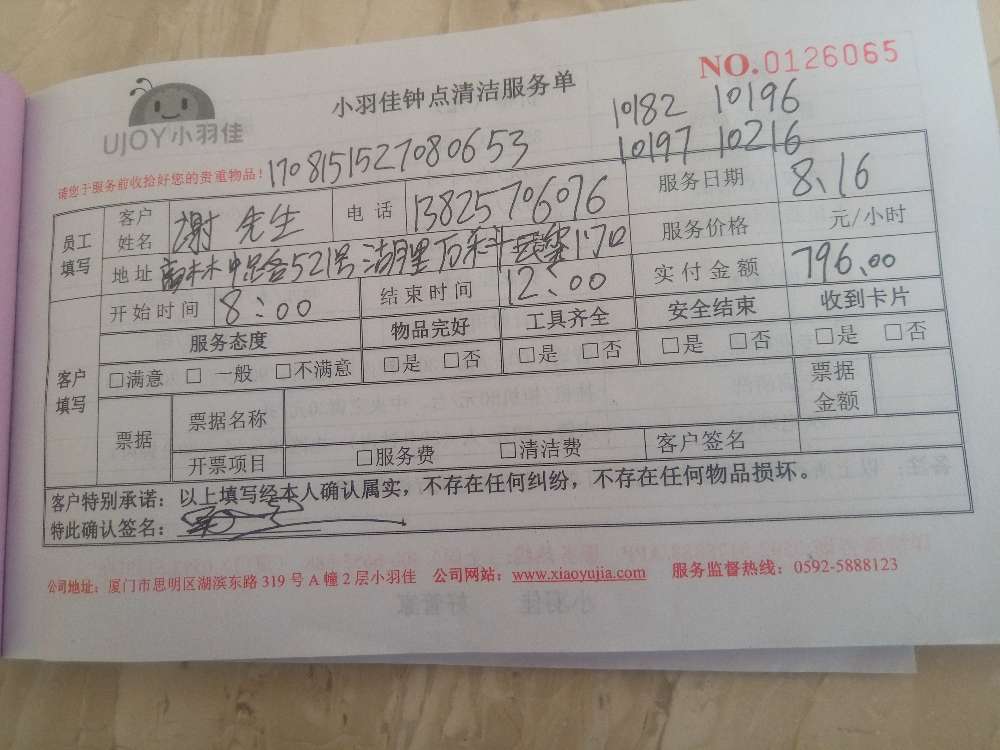 NO.0126065
UJOY小羽佳
小羽佳钟点清洁服务单
10182 10196
10197 10216
请您于服务前收拾好您的贵重物品！170815152708 0653
员工填写 客户姓名 谢先生 电话 13825706076 服务日期 8.16
地址 中 521号 湖里万 服务价格 元/小时
开始时间 8:00 结束时间 12:00 实付金额 796.00
客户填写 服务态度 物品完好 工具齐全 安全结束 收到卡片
□满意 □一般 □不满意 □是 □否 □是 □否 □是 □否 □是 □否
票据 票据名称 票据金额
开票项目 □服务费 □清洁费 客户签名
客户特别承诺：以上填写经本人确认属实，不存在任何纠纷，不存在任何物品损坏。
特此确认签名：
公司地址：厦门市思明区湖滨东路319号A幢2层小羽佳 公司网站：www.xiaoyujia.com 服务监督热线：0592-5888123